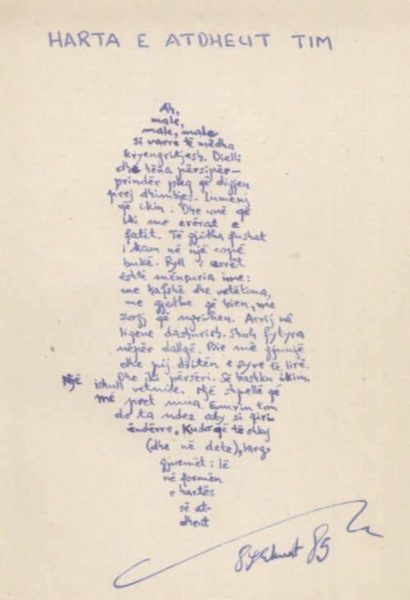 HARTA E ATDHEUT TIM
Ah,
male,
male, male
si varre të mëdha
kryengritjesh. Dielli
dhe hëna përsipër—
prindër pleq që digjen
prej dhimbjes. Lumenj
që ikin. Dhe unë që
iki me ererat e
fatit. Të gjitha fushat
i kam në një copë
bukë. Pyll i arrët
është mënyria ime:
me kafshë dhe vetëtima,
me gjethe që bien, me
zogj që ngrihen. Arrij në
liqene dashurish. Shoh fytyra
nëpër dallgë. Bie më gjunjë
dhe pij dritën e syve të lirë.
Dhe iki përsëri. Së bashku ikim.
Një ishull vetmie. Një shpellë që
më pret mua. Emrin tim
do ta ndez aty si qiri
ëndërre. Kudo që të shkoj
(dhe në dete), larg
gjurmët i lë
në formën
e hartës
së at-
dheut
85